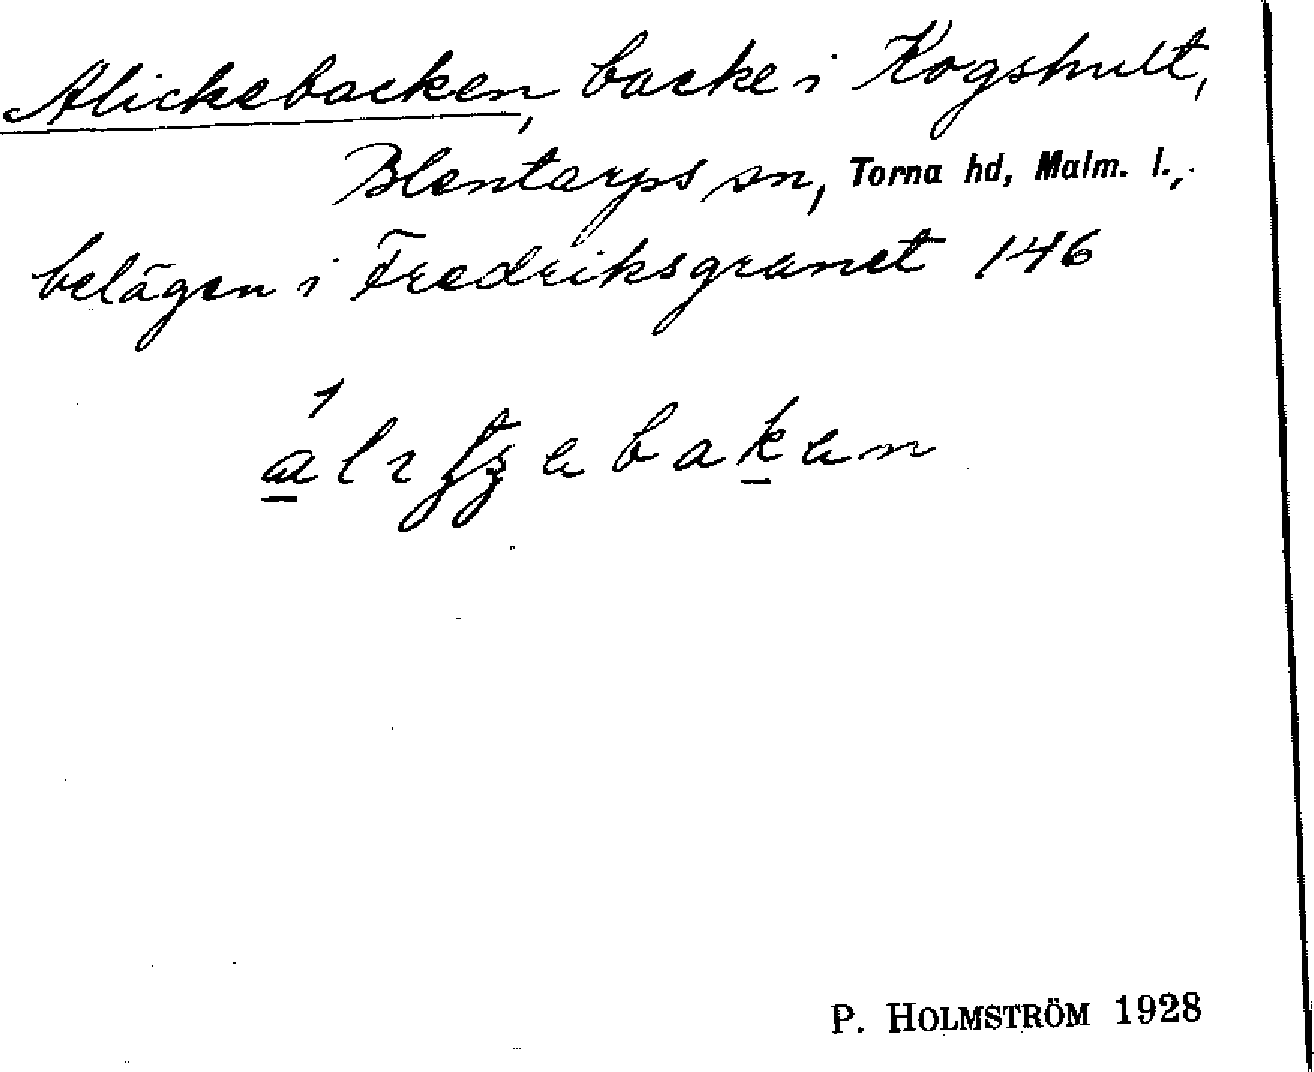 Alickebacken, backe i Kogshult,
Blentarps sn, Torna hd, Malm. l.,
belägen i Fredriksgranet 146
P. HOLMSTRÖM 1928